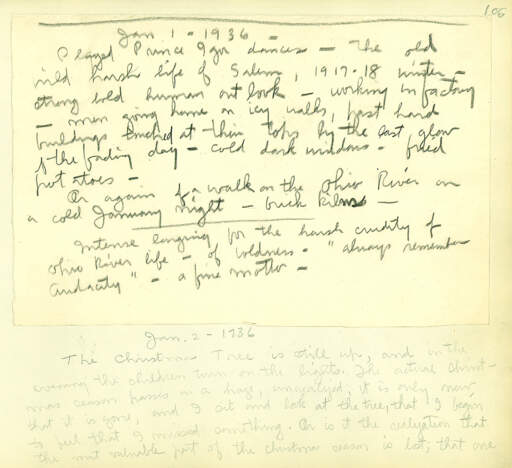 105
Jan. 1 - 1936 -
Played Prince Igor dances - The old
wild harsh life of Salem, 1917-18 winter -
strong bold human outlook - working in factory
- men going home on icy walks, past hard
buildings touched at their tops by the last glow
of the fading day - cold dark windows - fried
potatoes -
Or again of a walk on the Ohio River on
a cold January night - brick kilns -
Intense longing for the harsh crudity of
Ohio River life - of boldness - "always remember
audacity" - a fine motto -
Jan. 2 - 1936
The Christmas Tree is still up, and in the
evening the children turn on the lights. The actual Christ-
mas season passes in a haze, unrealized, it is only now,
that it is gone, and I sit and look at the tree, that I begin
to feel that I missed something. Or is it the realization that
the most valuable part of the Christmas season is lost, that one